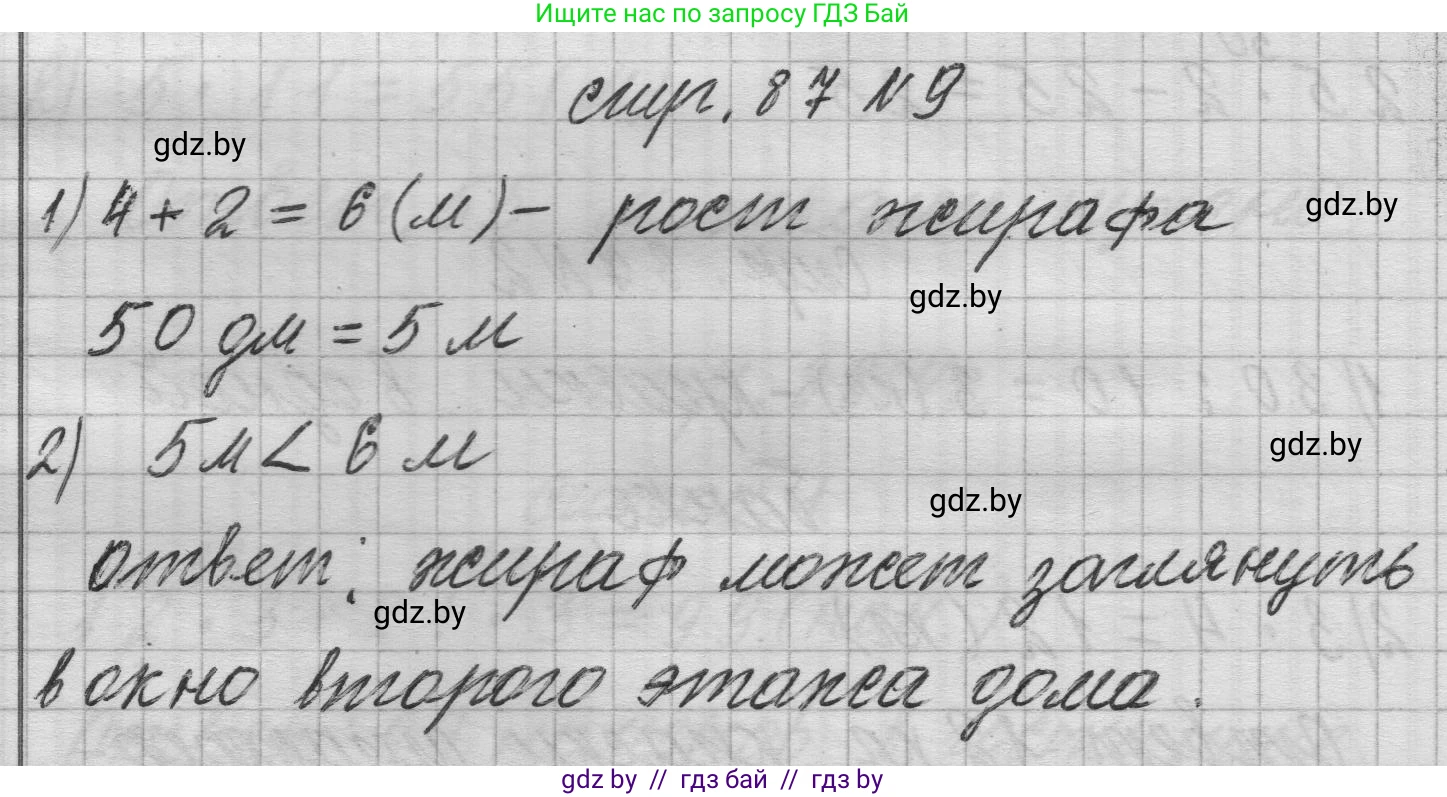 Ищите нас по запросу ГДЗ Бай
стр. 87 N 9
gdz.by
1) 4 + 2 = 6 (м) - рост жирафа
gdz.by
gdz.by
50 дм = 5 м
2) 5м < 6 м
gdz.by
gdz.by
ответ: жираф может заглянуть
gdz.by
в окно второго этажа дома.
gdz by // гдз бай // гдз by